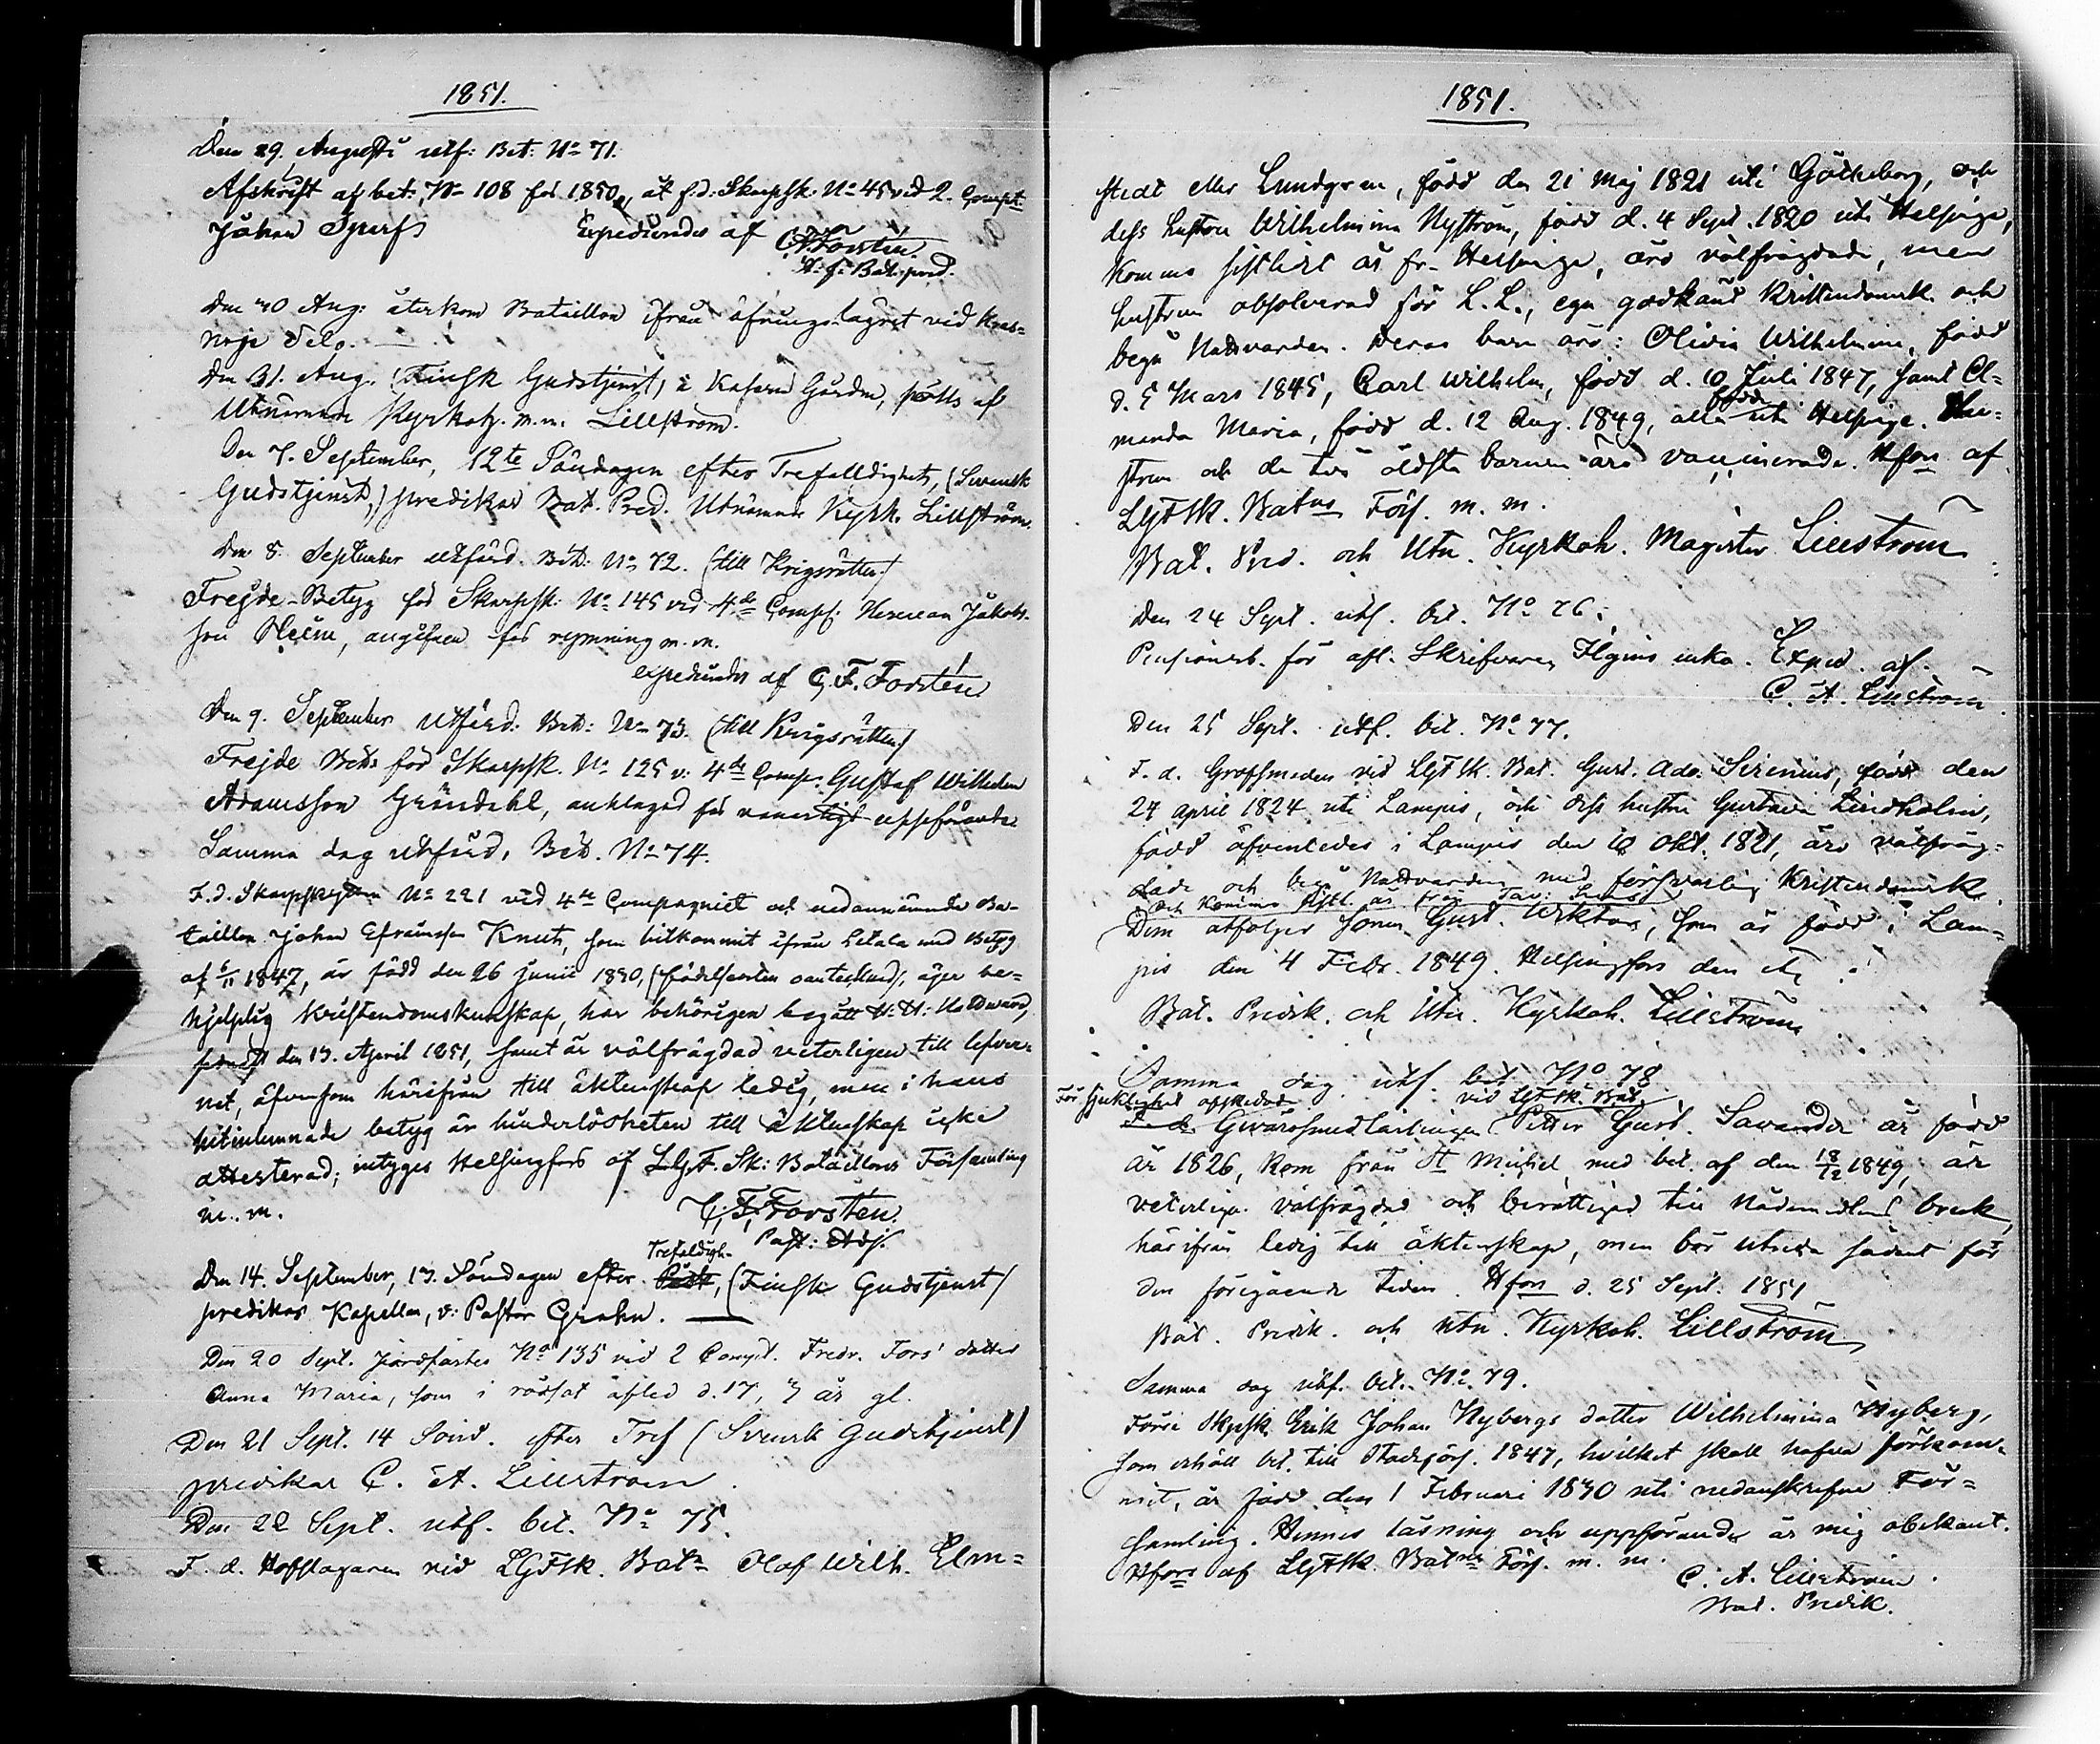 1851.
Den 29. Augusti utf: Bet: No 71.
Afskrift af bet: No 108 för 1850, åt f.d. Skarpsk: No 45 vid 2. Compt
Johan Sparf
Expedierades af C.F. Forstén
Bat: pred.
Den 30 Aug: återkom Bataillon ifrån öfnings-lägret vid Kras-
noje Selo.
Den 31. Aug. (Finsk Gudstjenst) i Kasern Gården, höltts af
Utnämnde Kyrkoh. m.m. Lillström.
Den 7. September, 12te Söndagen efter Trefalldighet, (Svensk
Gudstjenst,) predikar Bat. Pred. Utnämnde Kyrk. Lillström.
Den 8. September utfärd. Bet: No 72. (till Krigsrätten)
Frejde-Betyg för Skarpsk: No 145 vid 4de Comp: Herman Jakobs-
son Heim, angifven för rymning m.m.
expedierades af C.F. Forstén
Den 9. September Utfärd: Bet: No 73. (till Krigsrätten)
Frejde Bet: för Skarpsk. No 125 v: 4de Comp: Gustaf Wilhelm
Adamsson Gröndahl, anklagad för vanartigt uppförande.
Samma dag utfärd, Bet. No 74.
F.d. Skarpskytten No 221 vid 4de Compagniet och nedannämnde Ba-
taillon Johan Efraimsson Knuts, som hitkommit ifrån Letala med Betyg
af 6/11 1847, är född den 26 Junii 1830, (födelseorten oantecknad), äger be-
hjelplig kristendomskunskap, har behörigen begått H: H: Nattvard,
sednast den 13. April 1851, samt är välfrägdad veterligen till lefver-
net, äfvensom härifrån till äktenskap ledig, men i hans
hitinlemnade betyg är hinderlösheten till äktenskap icke
attesterad; intyges Helsingfors af L.G.F. Sk: Bataillons Församling
m.m.
C.F. Forstén
Past: Adj.
Trefaldigh.
Den 14. September, 13. Söndagen efter Påsk, (Finsk Gudstjenst)
predikar Kapellan, v: Pastor Grahn.
Den 20 Sept. jordfästes No 135 vid 2 Compt. Fredr. Fors' dotter
Anna Maria, som i rödsot afled d. 17, 7 år gl.
Den 21 Sept. 14 Sönd. efter Tref (Svensk Gudstjenst)
predikar C. A. Lillström.
Den 22 Sept. utf. bet. No 75.
F. d. Hofslagaren vid LGFSk. Batn Olof Wilh. Elm-
1851.
stedt eller Lundgren, född den 21 Maj 1821 uti Götheborg, och
dess hustru Wilhelmina Nyström, född d. 4 Sept. 1820 uti Helsinge,
komma sistlidet år fr. Helsinge, äro välfrägdade, men
hustrun absolverad för L.L., ega godkänd Kristendomsk. och
begå Nattvarden. Deras barn äro: Olivia Wilhelmina, född
d. 5 Mars 1845, Carl Wilhelm, född d. 10 Juli 1847, samt A-
född
manda Maria, född d. 12 Aug. 1849, alla uti Helsinge. Hu-
strun och de två äldsta barnen äro vaccinerade. Hfors af
LGFSk. Batns Förs. m. m.
Bat. Pred. och Utn. Kyrkoh. Magister Lillström
Den 24 Sept. utf. bet. No 76.
Pensionsb. för afl. Skrifvaren Ilgins enka. Exped. af.
C. A. Lillström.
Den 25 Sept. utf. bet. No 77.
F. d. Grofsmeden vid LGFSk. Bat. Gust. Ado. Sirenius, född den
24 April 1824 uti Lampis, och dess hustru Gustava Lindholm,
född äfvenledes i Lampis den 10 Okt. 1821, äro välfräg-
dade och begå Nattvarden med försvarlig Kristendomsk.
och komma sistl. år från
Dem åtföljer sonen Gust. Wiktor, som är född i Lam-
pis den 4 Febr. 1849. Helsingfors den etc.
Bat. Predik. och Utn. Kyrkoh. Lillström
Samma dag utf. bet. No 78
För sjuklighet afskedade vid LGFSk. Bat.
F. d. Gevärsmedlärlingen Petter Gust. Savander är född
år 1826, kom från St Michel med bet. af den 18/12 1849, är
veterligen välfrägdad och berättigad till Nådemedlens bruk,
härifrån ledig till äktenskap, men bör utreda sådant för
den föregående tiden. Hfors d. 25 Sept. 1851
Bat. Predik. och Utn. Kyrkoh. Lillström
Samma dag utf. bet. No 79.
Förre Skpsk. Erik Johan Nybergs dotter Wilhelmina Nyberg,
som erhöll bet. till Stadsförs. 1847, hvilket skall hafva förkom-
mit, är född den 1 Februari 1830 uti nedanskrefne För-
samling. Hennes läsning och uppförande är mig obekant.
Hfors af LGFSk. Batns Förs. m. m.
C. A. Lillström.
Bat. Predik.